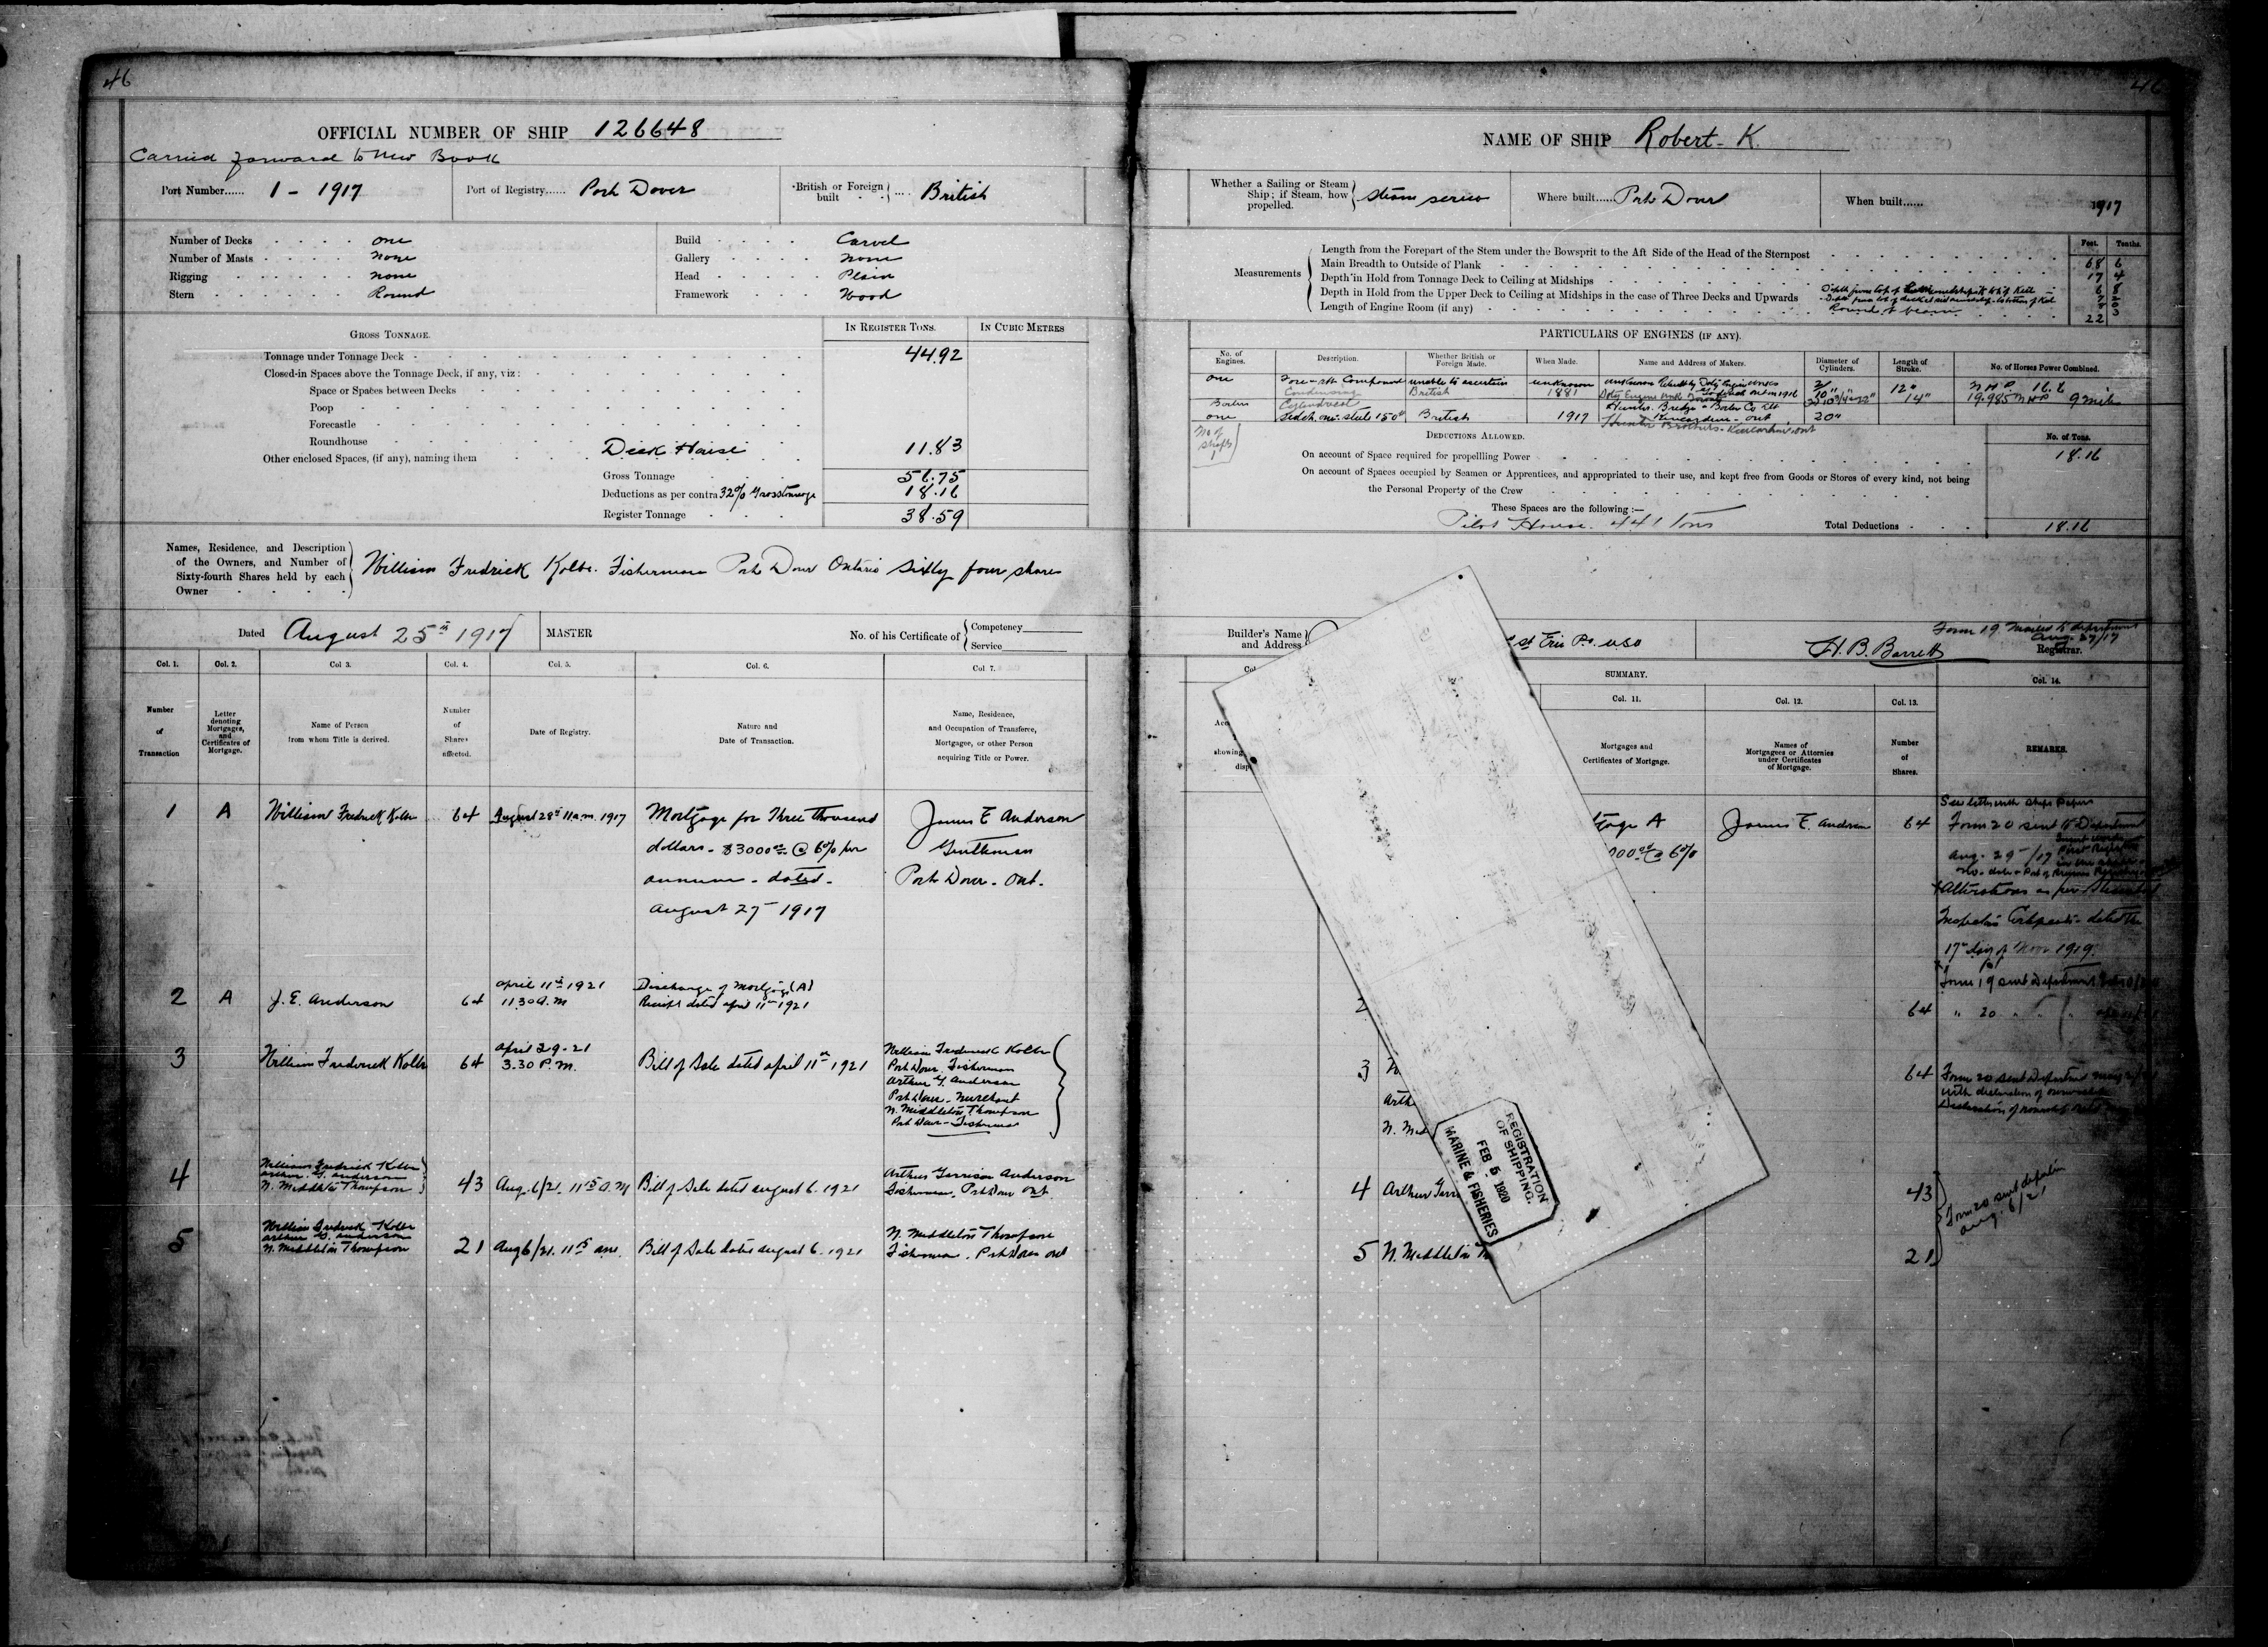 46
OFFICIAL NUMBER OF SHIP 126648
Carried forward to New Book
Port Number...... 1 - 1917
Port of Registry...... Port Dover
British or Foreign built .... British
Number of Decks one
Number of Masts none
Rigging none
Stern Round
Build Carvel
Gallery none
Head Plain
Framework Wood
GROSS TONNAGE.
IN REGISTER TONS. IN CUBIC METRES
Tonnage under Tonnage Deck 44.92
Closed-in Spaces above the Tonnage Deck, if any, viz:
Space or Spaces between Decks
Poop
Forecastle
Roundhouse
Other enclosed Spaces, (if any), naming them Deck House 11.83
Gross Tonnage 56.75
Deductions as per contra 32% Gross tonnage 18.16
Register Tonnage 38.59
Names, Residence, and Description
of the Owners, and Number of
Sixty-fourth Shares held by each
Owner
William Fredrick Kolbe. Fisherman Port Dover Ontario sixty four shares
Dated August 25th 1917
MASTER
No. of his Certificate of
Competency
Service
Col. 1. Col. 2. Col 3. Col. 4. Col. 5. Col. 6. Col 7.
Number of Transaction
Letter denoting Mortgages, and Certificates of Mortgage.
Name of Person from whom Title is derived.
Number of Shares affected.
Date of Registry.
Nature and Date of Transaction.
Name, Residence, and Occupation of Transferee, Mortgagee, or other Person acquiring Title or Power.
1 A William Fredrick Kolbe 64 August 28th 11 a.m. 1917 Mortgage for Three thousand James E Anderson
dollars - $3000.00 @ 6% per Gentleman
annum - dated - Port Dover - Ont.
August 27 - 1917
2 A J. E. Anderson 64 April 11th 1921
11.30 A.M
Discharge of Mortgage (A)
Receipt dated April 11th 1921
3 William Frederick Kolbe 64 April 29 - 21
3.30 P.M.
Bill of Sale dated April 11th 1921
William Frederick Kolbe
Port Dover Fisherman
Arthur G. Anderson
Port Dover - Merchant
N. Middleton Thompson
Port Dover - Fisherman
4 William Fredrick Kolbe
Arthur G. Anderson
N. Middleton Thompson
43 Aug. 6/21. 11 15 A.M Bill of Sale dated August 6. 1921
Arthur Garrison Anderson
Fisherman, Port Dover Ont
5 William Fredrick Kolbe
Arthur G. Anderson
N. Middleton Thompson
21 Aug 6/21. 11 15 am. Bill of Sale dated August 6. 1921
N. Middleton Thompson
Fisherman, Port Dover Ont
46
NAME OF SHIP Robert K.
Whether a Sailing or Steam Ship; if Steam, how propelled. Steam screw
Where built...... Port Dover
When built...... 1917
Measurements
Feet. Tenths.
Length from the Forepart of the Stem under the Bowsprit to the Aft Side of the Head of the Sternpost 68 6
Main Breadth to Outside of Plank 17 4
Depth in Hold from Tonnage Deck to Ceiling at Midships 6 8
Depth in Hold from the Upper Deck to Ceiling at Midships in the case of Three Decks and Upwards
Round of beam
Length of Engine Room (if any) 22
PARTICULARS OF ENGINES (IF ANY).
No. of Engines. Description. Whether British or Foreign Made. When Made. Name and Address of Makers. Diameter of Cylinders. Length of Stroke. No. of Horses Power Combined.
one Fore - aft Compound unable to ascertain unknown
Condensing British 1881
12"
14"
N H P. 16.6
19.985 N H P 9 miles
Boilers Cylindrical
one steel 150# British 1917 Hunter Bridge & Boiler Co Ltd
Kincardine - Ont 20"
Hunter Brothers - Kincardine, Ont
No of shafts 1
DEDUCTIONS ALLOWED.
No. of Tons.
On account of Space required for propelling Power 18.16
On account of Spaces occupied by Seamen or Apprentices, and appropriated to their use, and kept free from Goods or Stores of every kind, not being
the Personal Property of the Crew
These Spaces are the following:—
Pilot House. 4.41 Tons
Total Deductions 18.16
Builder's Name and Address
st Erie Pa. USA
H. B. Barrett
Registrar.
Form 19 mailed to department
Aug 27/17
SUMMARY.
Col. 11. Col. 12. Col. 13. Col. 14.
Mortgages and Certificates of Mortgage.
Names of Mortgagees or Attornies under Certificates of Mortgage.
Number of Shares.
REMARKS.
gage A James E. Anderson 64
000.00 @ 6%
See letter with Ships Papers
Form 20 sent to Department
Aug - 29 - /17
Alterations as per Steamboat
Inspectors Certificate - dated the
17th day of Nov 1919.
Form 19 sent Department
2 64 " 20 " "
3 64 Form 20 sent Department
with declaration of ownership
Arth
N. Mid
4 Arthur Garr 43
5 N. Middleton 21
Form 20 sent
Aug. 6/21
REGISTRATION
OF SHIPPING.
FEB 5 1920
MARINE & FISHERIES